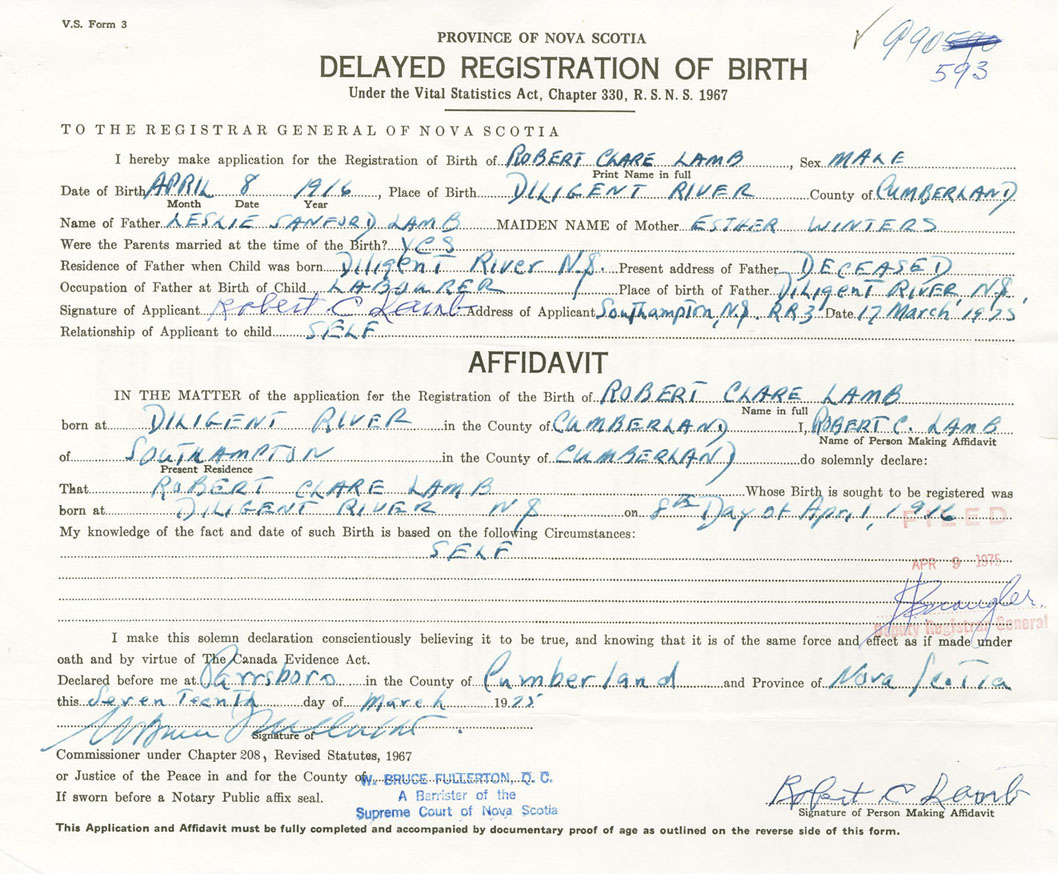 V.S. Form 3
990590
593
PROVINCE OF NOVA SCOTIA
DELAYED REGISTRATION OF BIRTH
Under the Vital Statistics Act, Chapter 330, R. S. N. S. 1967
TO THE REGISTRAR GENERAL OF NOVA SCOTIA
I hereby make application for the Registration of Birth of ROBERT CLARE LAMB, Sex MALE
Print Name in full
Date of Birth APRIL 8 1916, Place of Birth DILIGENT RIVER County of CUMBERLAND
Month Date Year
Name of Father LESLIE SANFORD LAMB MAIDEN NAME of Mother ESTHER WINTERS
Were the Parents married at the time of the Birth? YES
Residence of Father when Child was born Diligent River N.S. Present address of Father DECEASED
Occupation of Father at Birth of Child LABOURER Place of birth of Father DILIGENT RIVER, N.S.
Signature of Applicant Robert C Lamb Address of Applicant Southampton, N.S. RR3 Date 17 March 1975
Relationship of Applicant to child SELF
AFFIDAVIT
IN THE MATTER of the application for the Registration of the Birth of ROBERT CLARE LAMB
Name in full
born at DILIGENT RIVER in the County of CUMBERLAND I, ROBERT C. LAMB
Name of Person Making Affidavit
of SOUTHAMPTON in the County of CUMBERLAND do solemnly declare:
Present Residence
That ROBERT CLARE LAMB Whose Birth is sought to be registered was
born at DILIGENT RIVER NS on 8th Day of April, 1916
FILED
My knowledge of the fact and date of such Birth is based on the following Circumstances:
SELF
APR 9 1975
Deputy Registrar General
I make this solemn declaration conscientiously believing it to be true, and knowing that it is of the same force and effect as if made under
oath and by virtue of The Canada Evidence Act.
Declared before me at Parrsboro in the County of Cumberland and Province of Nova Scotia
this Seventeenth day of March 1975
Signature of
Commissioner under Chapter 208, Revised Statutes, 1967
or Justice of the Peace in and for the County of W. BRUCE FULLERTON, Q. C.
If sworn before a Notary Public affix seal. A Barrister of the
Supreme Court of Nova Scotia
Robert C Lamb
Signature of Person Making Affidavit
This Application and Affidavit must be fully completed and accompanied by documentary proof of age as outlined on the reverse side of this form.